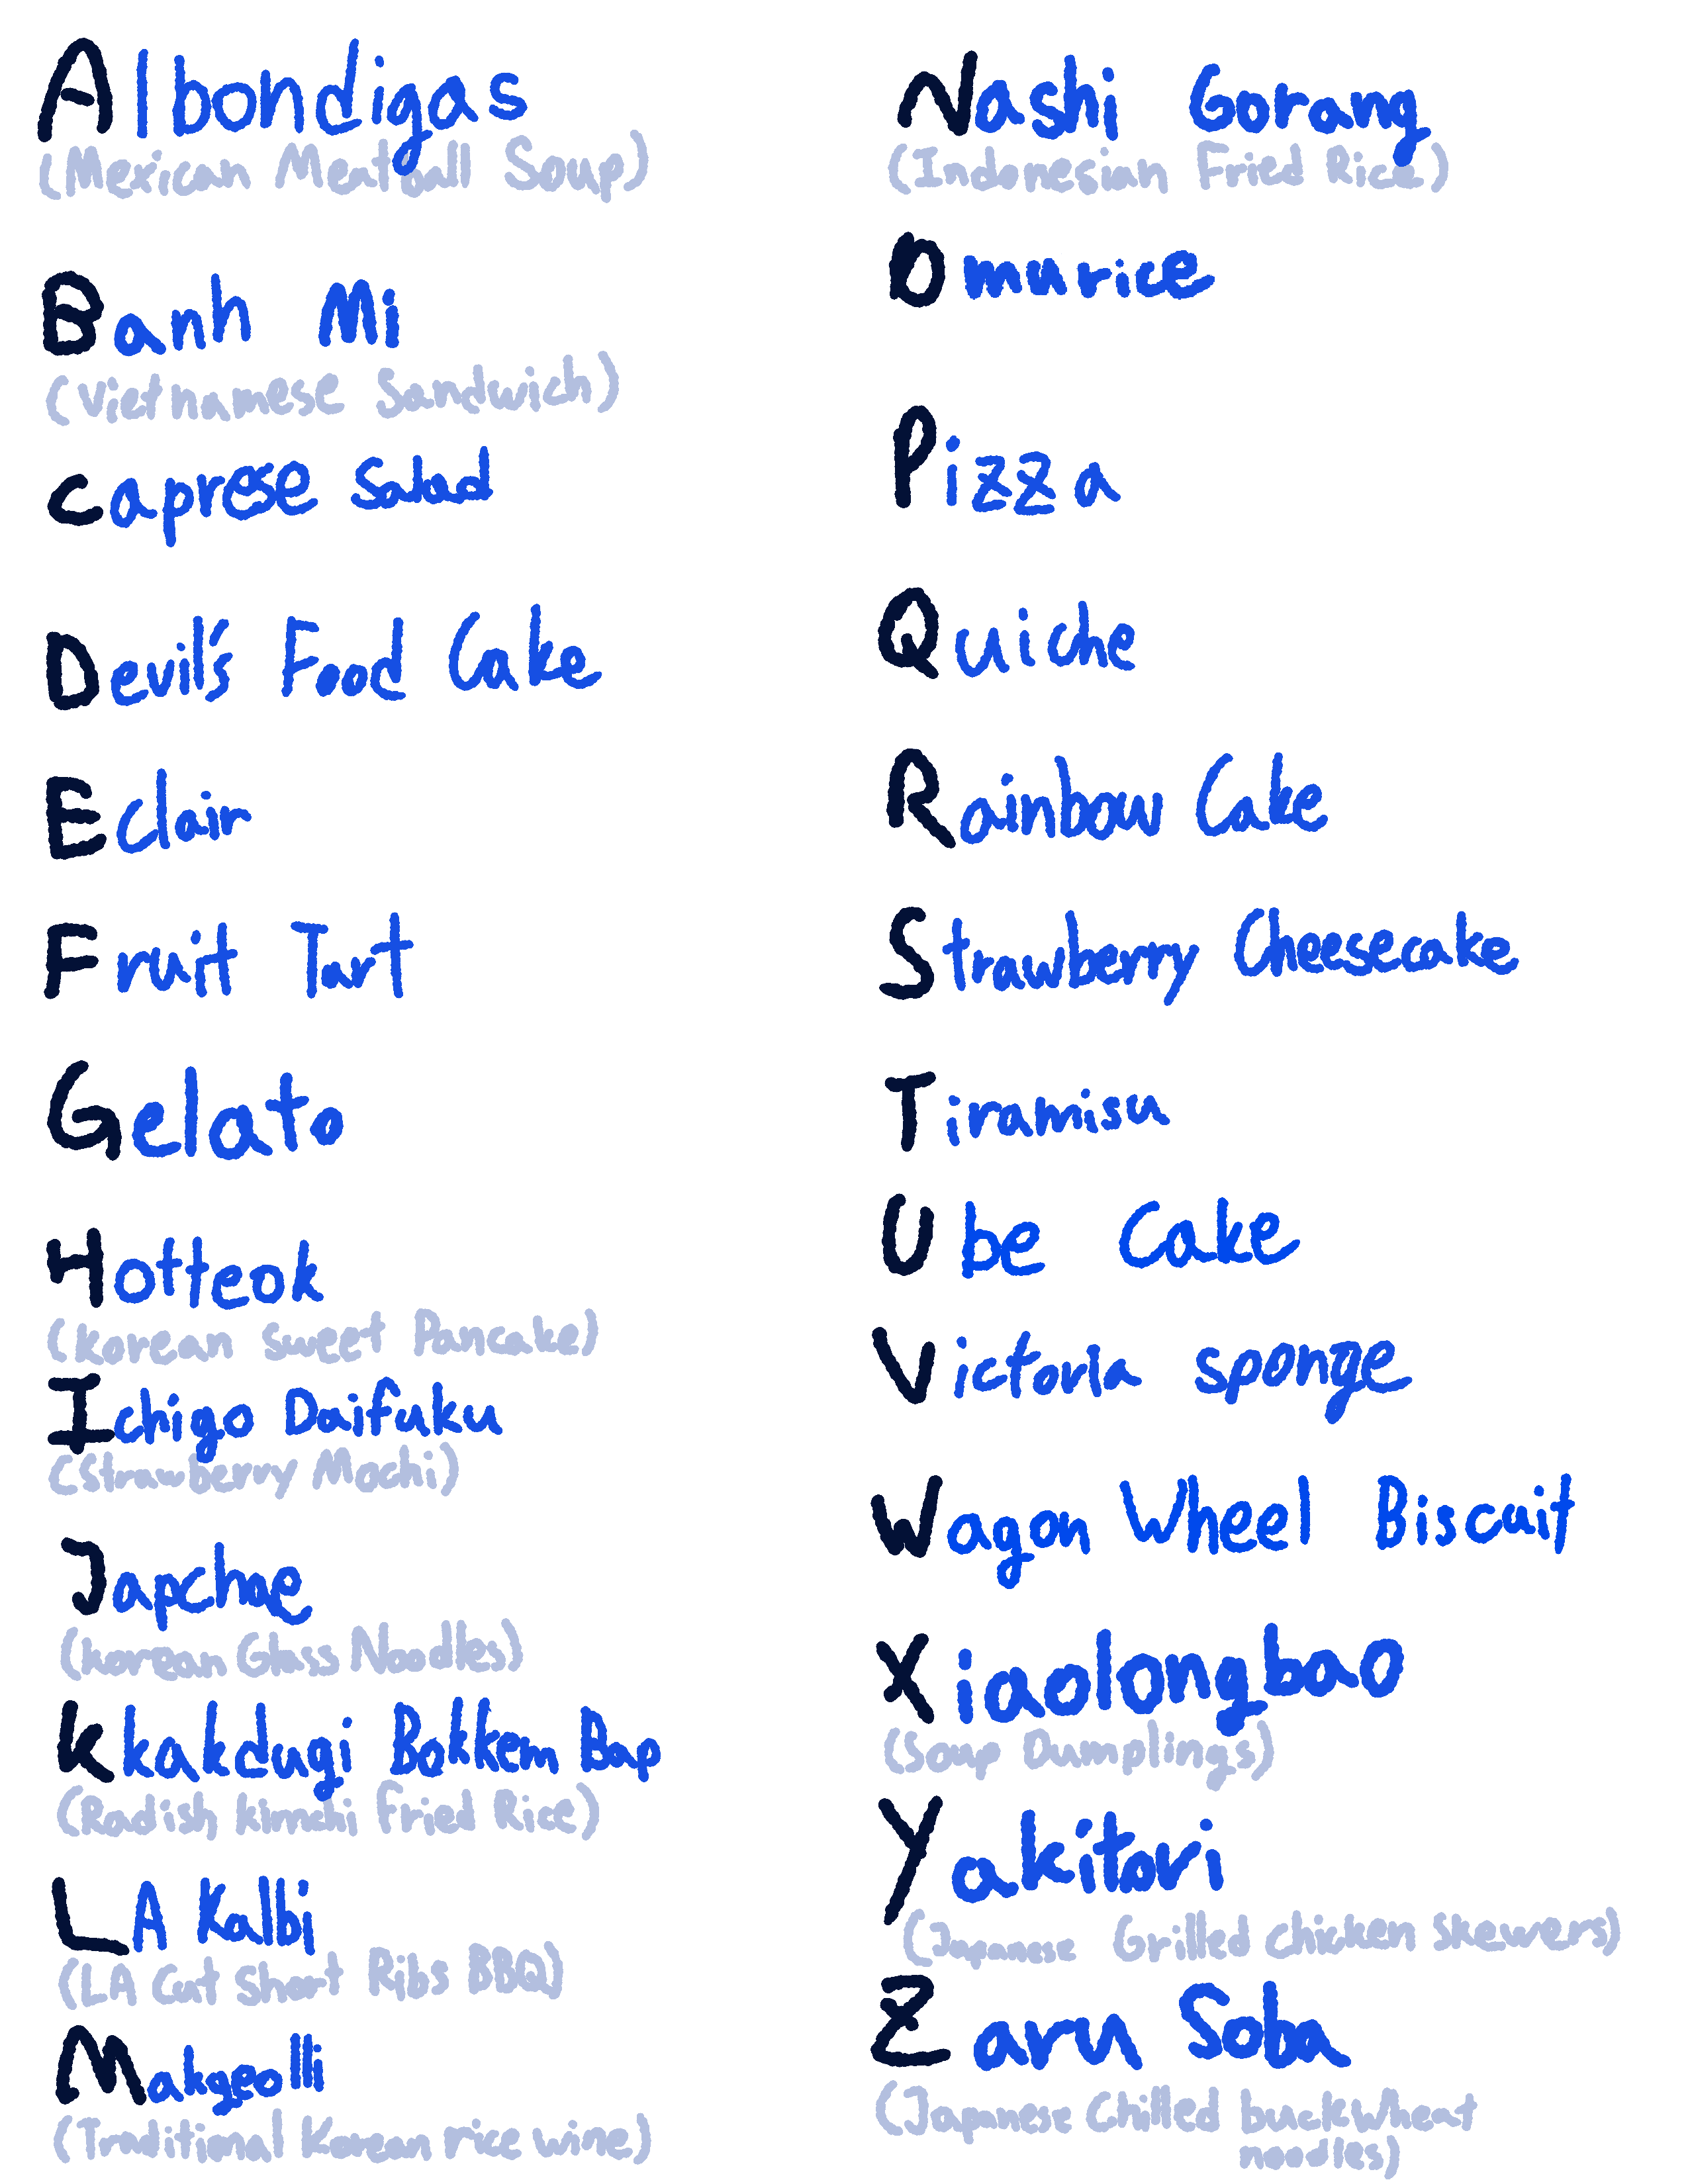 Albondigas
(Mexican Meatball Soup)
Banh Mi
(Vietnamese Sandwich)
caprese Salad
Devil's Food Cake
Eclair
Fruit Tart
Gelato
Hotteok
(Korean Sweet Pancake)
Ichigo Daifuku
(Strawberry Mochi)
Japchae
(Korean Glass Noodles)
Kkakdugi Bokkem Bap
(Radish kimchi Fried Rice)
LA Kalbi
(LA Cut Short Ribs BBQ)
Makgeolli
(Traditional Korean rice wine)
Nashi Gorang
(Indonesian Fried Rice)
Omurice
Pizza
Quiche
Rainbow Cake
Strawberry Cheesecake
Tiramisu
Ube Cake
Victoria sponge
Wagon Wheel Biscuit
Xiaolongbao
(Soup Dumplings)
Yakitori
(Japanese Grilled chicken skewers)
Zaru Soba
(Japanese Chilled buckwheat
noodles)